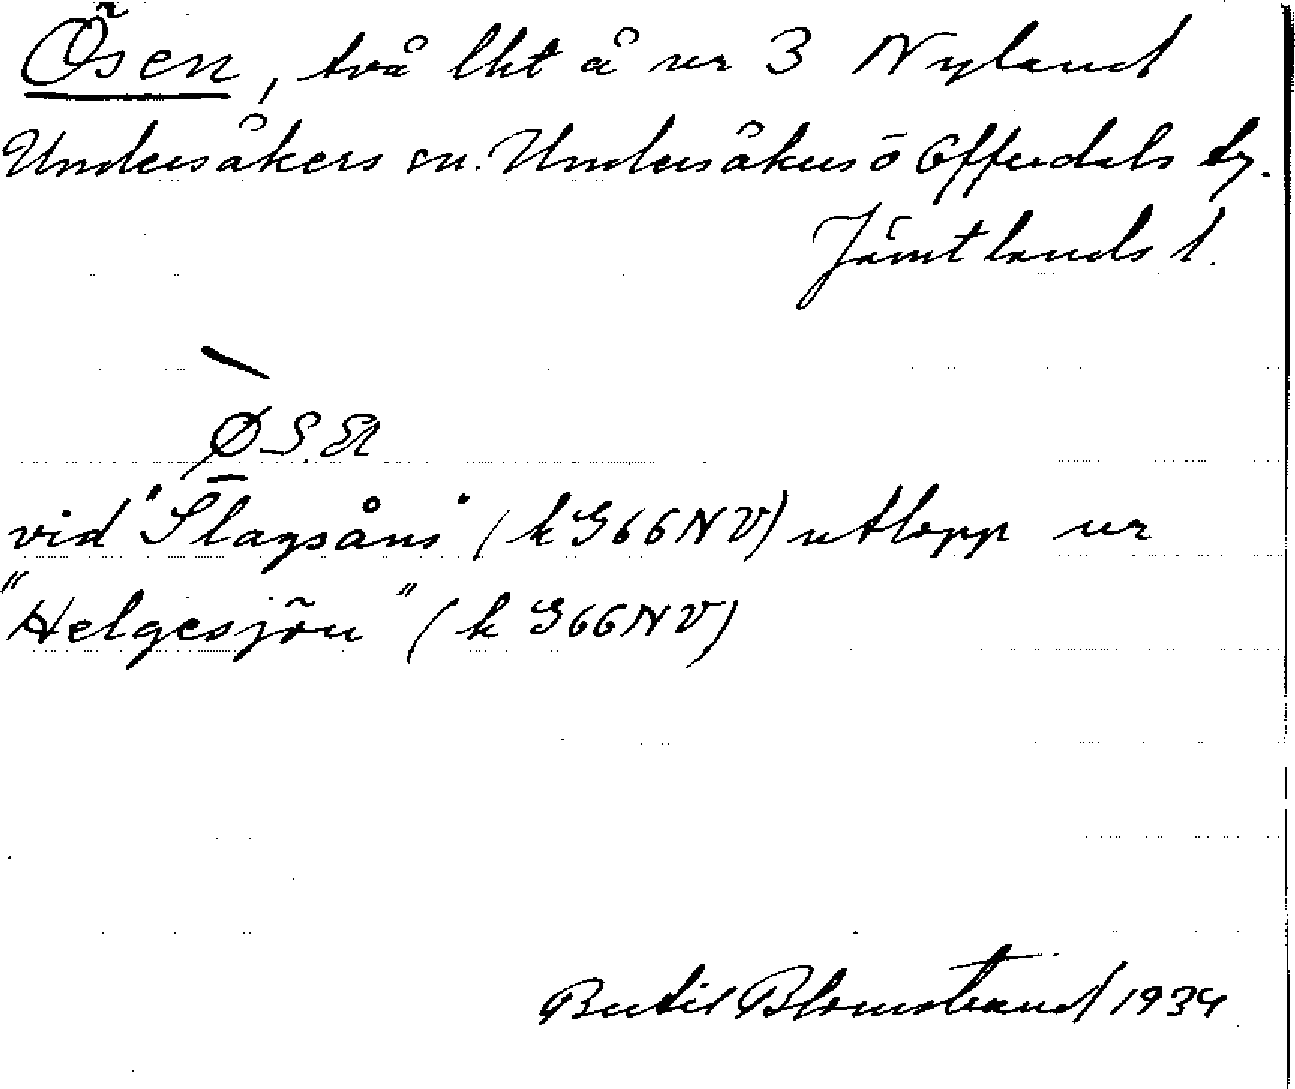 Ösen, två lht å nr 3 Nyland
Undersåkers sn. Undersåkers o Offerdals tg.
Jämtlands l.
vid "Slagsåns" (k G66NV) utlopp ur
"Helgesjön" (k G66NV)
Bertil Blomstrand 1934